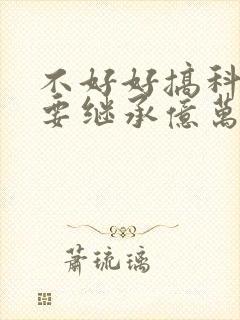 不好好搞科
要继承億萬
蕭琉璃